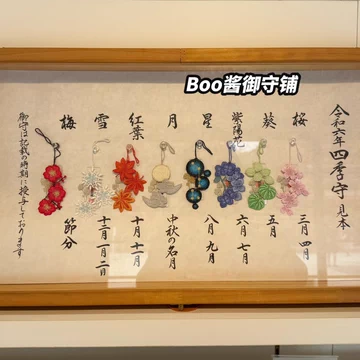 Boo酱御守铺
令和六年 四季守 見本
桜 三月 四月
葵 五月
紫陽花 六月 七月
星 八月 九月
月 中秋の名月
紅葉 十月 十一月
雪 十二月 一月 二月
梅 節分
御守は記載の時期に授与しております